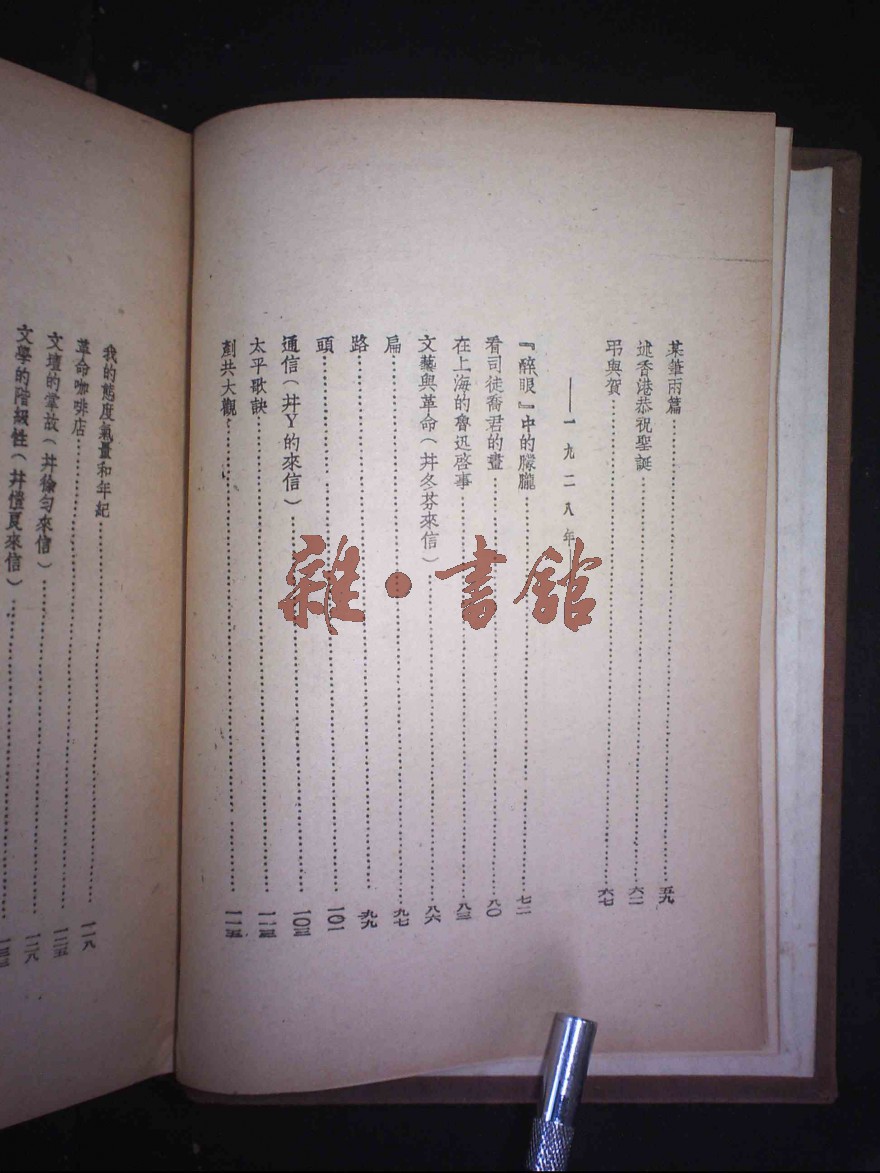 某筆兩篇……五九
述香港恭祝聖誕……六二
弔與賀……六七
——一九二八年——
『醉眼』中的朦朧……七二
看司徒喬君的畫……八〇
在上海的魯迅啓事……八三
文藝與革命（幷冬芬來信）……八六
扁……九七
路……九九
頭……一〇一
通信（幷Y的來信）……一〇三
太平歌訣……一一三
剷共大觀……一一五
我的態度氣量和年紀……一一八
革命咖啡店……一二五
文壇的掌故（幷徐匀來信）……一二八
文學的階級性（幷愷良來信）……一三三
雜·書館